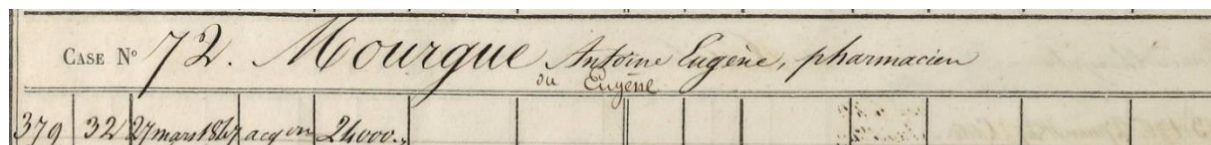 CASE Nº 72. Mourgue Antoine Eugène, pharmacien
ou Eugène
379 32 27 mars 1867 acq on 24000.